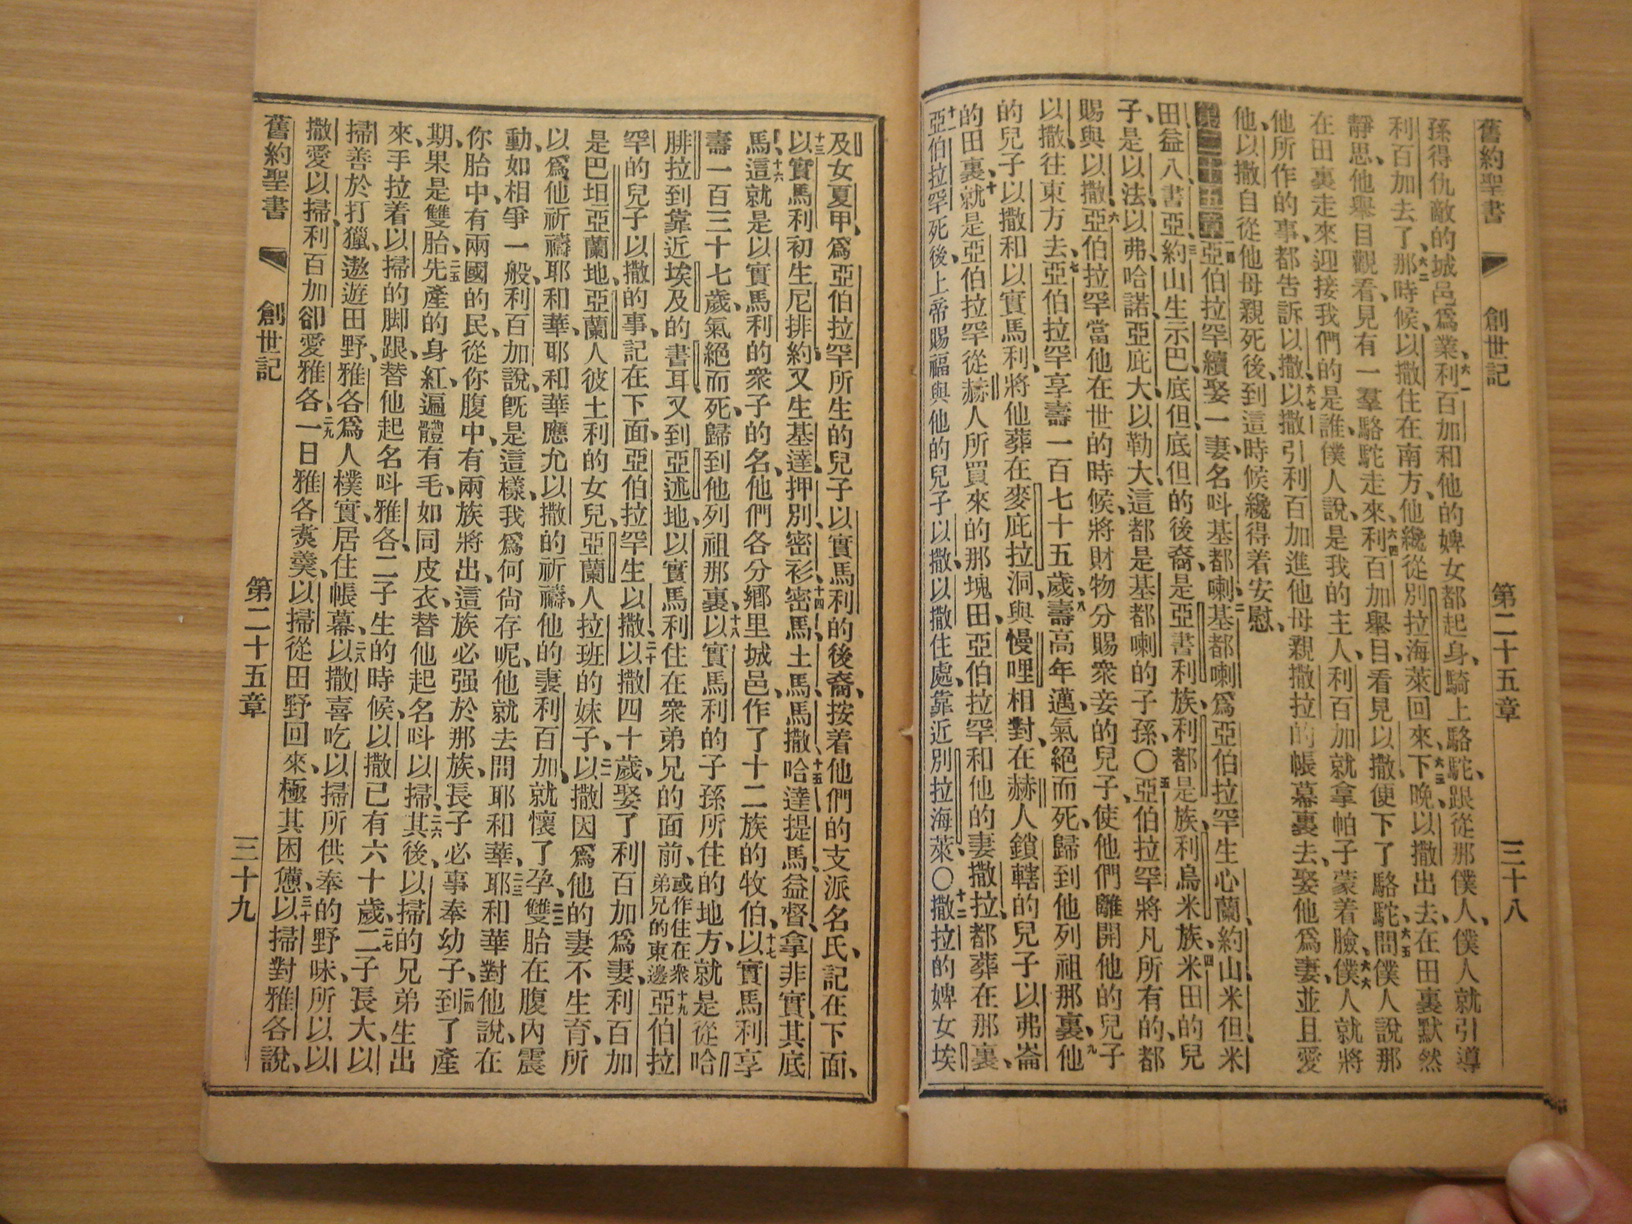 舊約聖書 創世記 第二十五章 三十八
孫得仇敵的城邑爲業、六一利百加和他的婢女都起身、騎上駱駝、跟從那僕人、僕人就引導
利百加去了、六二那時候、以撒住在南方、他纔從別拉海萊回來、六三下晚以撒出去、在田裏默然
靜思、他舉目觀看、見有一羣駱駝走來、六四利百加舉目、看見以撒、便下了駱駝、六五問僕人說、那
在田裏走來迎接我們的是誰、僕人說、是我的主人、利百加就拿帕子蒙着臉、六六僕人就將
他所作的事、都告訴以撒、六七以撒引利百加進他母親撒拉的帳幕裏去、娶他爲妻、並且愛
他、以撒自從他母親死後、到這時候纔得着安慰、
第二十五章一亞伯拉罕續娶一妻、名呌基都喇、二基都喇爲亞伯拉罕生心蘭、約山、米但、米
田、益八、書亞、三約山生示巴、底但、底但的後裔、是亞書利族、利都是族、利烏米族、四米田的兒
子、是以法、以弗、哈諾、亞庇大、以勒大、這都是基都喇的子孫、〇五亞伯拉罕將凡所有的、都
賜與以撒、六亞伯拉罕當他在世的時候、將財物分賜衆妾的兒子、使他們離開他的兒子
以撒、往東方去、七亞伯拉罕享壽一百七十五歲、八壽高年邁、氣絕而死、歸到他列祖那裏、九他
的兒子以撒和以實馬利、將他葬在麥庇拉洞、與慢哩相對、在赫人鎖轄的兒子以弗崙
的田裏、十就是亞伯拉罕從赫人所買來的那塊田、亞伯拉罕和他的妻撒拉、都葬在那裏、
十一亞伯拉罕死後、上帝賜福與他的兒子以撒、以撒住處、靠近別拉海萊、〇十二撒拉的婢女埃
及女夏甲、爲亞伯拉罕所生的兒子以實馬利的後裔、按着他們的支派名氏、記在下面、
十三以實馬利初生尼排約、又生基達、押別、密衫、十四密馬、土馬、馬撒、十五哈達、提馬、益督、拿非實、其底
馬、十六這就是以實馬利的衆子的名、他們各分鄉里城邑、作了十二族的牧伯、十七以實馬利享
壽一百三十七歲、氣絕而死、歸到他列祖那裏、十八以實馬利的子孫所住的地方、就是從哈
腓拉到靠近埃及的書耳、又到亞述地、以實馬利住在衆弟兄的面前、或作住在衆弟兄的東邊十九亞伯拉
罕的兒子以撒的事、記在下面、亞伯拉罕生以撒、二十以撒四十歲、娶了利百加爲妻、利百加
是巴坦亞蘭地、亞蘭人彼土利的女兒、亞蘭人拉班的妹子、二一以撒因爲他的妻不生育、所
以爲他祈禱耶和華、耶和華應允以撒的祈禱、他的妻利百加就懷了孕、二二雙胎在腹內震
動、如相爭一般、利百加說、旣是這樣、我爲何尙存呢、他就去問耶和華、二三耶和華對他說、在
你胎中、有兩國的民、從你腹中、有兩族將出、這族必强於那族、長子必事奉幼子、二四到了產
期、果是雙胎、二五先產的身紅、遍體有毛、如同皮衣、替他起名呌以掃、二六其後、以掃的兄弟生出
來、手拉着以掃的脚跟、替他起名呌雅各、二子生的時候、以撒已有六十歲、二七二子長大、以
掃善於打獵、遨遊田野、雅各爲人樸實、居住帳幕、二八以撒喜吃以掃所供奉的野味、所以以
撒愛以掃、利百加卻愛雅各、二九一日雅各煑羹、以掃從田野回來、極其困憊、三十以掃對雅各說、
舊約聖書 創世記 第二十五章 三十九